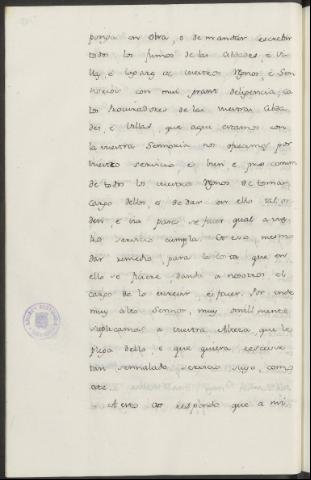 ponga en obra, e de mandar escrebir
todos los fumos de las Cibdades, e Vi-
llas, e Logares de vuestros Regnos, e Sen-
norios con mui grant deligencia, ca
los Procuradores de las vuestras Cibda-
des, e Villas, que aqui estamos con
la vuestra Sennoria nos ofrecemos por
vuestro servicio, e bien e pro comun
de todos los vuestros Regnos de tomar
cargo dello, e de dar en ello tal or-
den, e via para se facer qual a vues-
tro servicio cumpla. Et eso mesmo
dar remedio para la costa que en
ello se ficiere, dando a nosotros el
cargo de lo enviar, e facer. Por ende
muy alto Sennor, muy omillmente
suplicamos a vuestra Alteza, que le
plega dello, e que quiera rescevir
tan sennalado servicio suyo, como
este.
A esto vos respondo que a mi